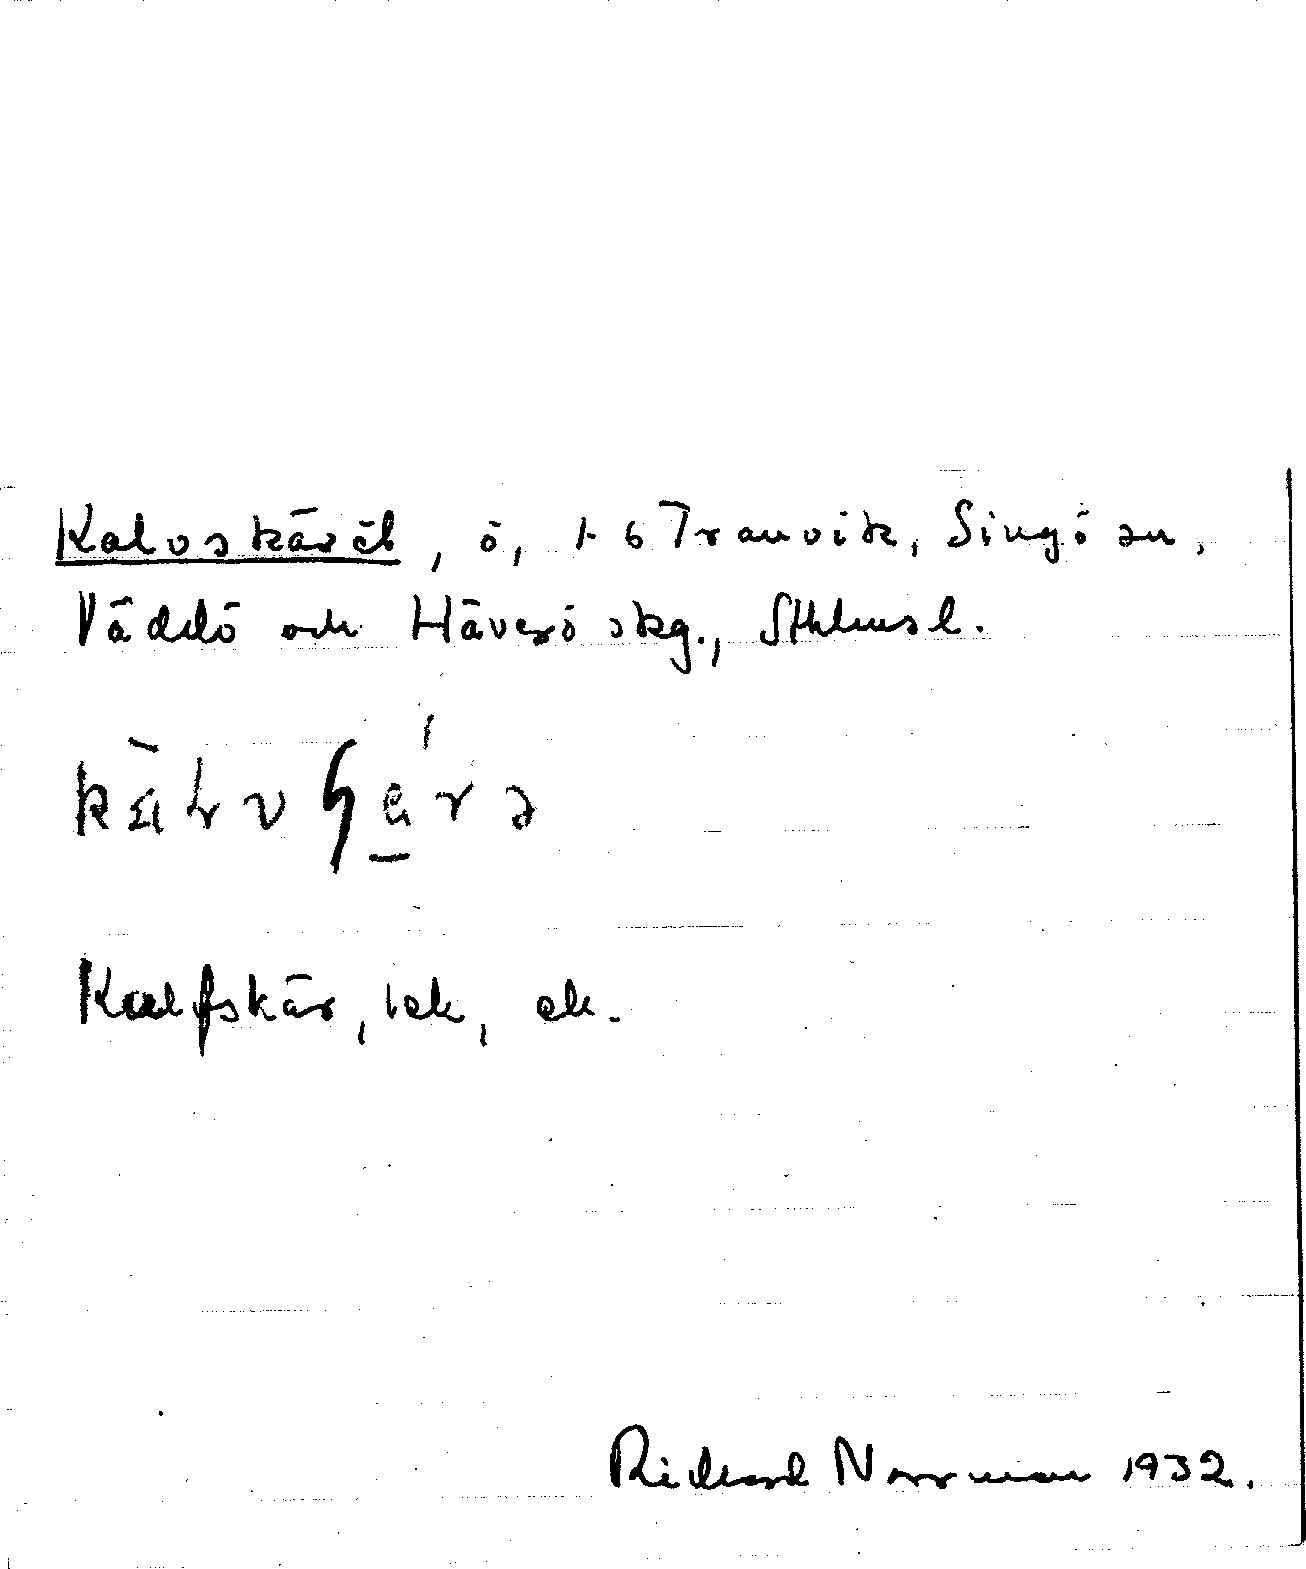 Kalvskäret, ö, 1-6 Tranvik, Singö sn,
Väddö och Häverö skg., Sthlmsl.
Kalfskär, lek, ek.
Richard Norrman 1932.